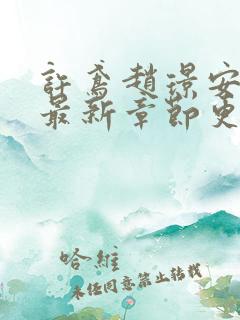 許鳶趙璟安
最新章節更
哈維
未經同意禁止轉載